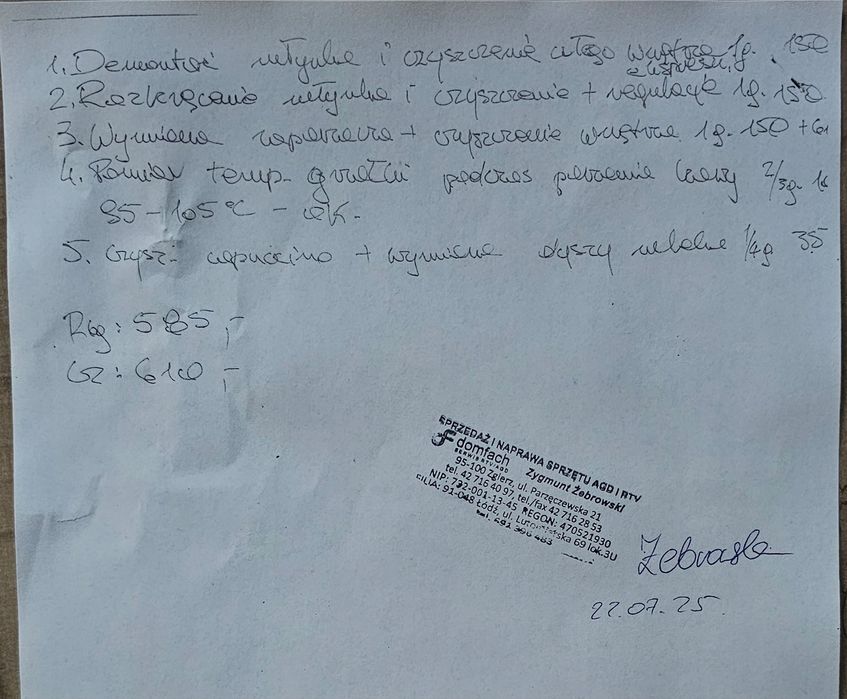 1. Demontaż młynka i czyszczenie całego wnętrza 1g. 150
ekspresu
2. Rozkręcanie młynka i czyszczenie + regulacja 1g. 150
3. Wymiana zaparzacza + czyszczenie wnętrza 1g. 150 + 
4. Pomiar temp. grzałki podczas parzenia kawy 2/3g. 
95 - 105°C - ok.
5. Czyszcz. capuccino + wymiana dyszy mleka 1/4g 35
Rbg: 585,-
Cz: 610,-
SPRZEDAŻ I NAPRAWA SPRZĘTU AGD I RTV
domfach Zygmunt Żebrowski
SERWIS RTV/AGD
95-100 Zgierz, ul. Parzęczewska 21
tel. 42 716 40 97, tel./fax 42 716 28 53
NIP: 732-001-13-45 REGON: 470521930
FILIA: 91-048 Łódź, ul. 69 lok.3U
Żebrowski
22.07.25